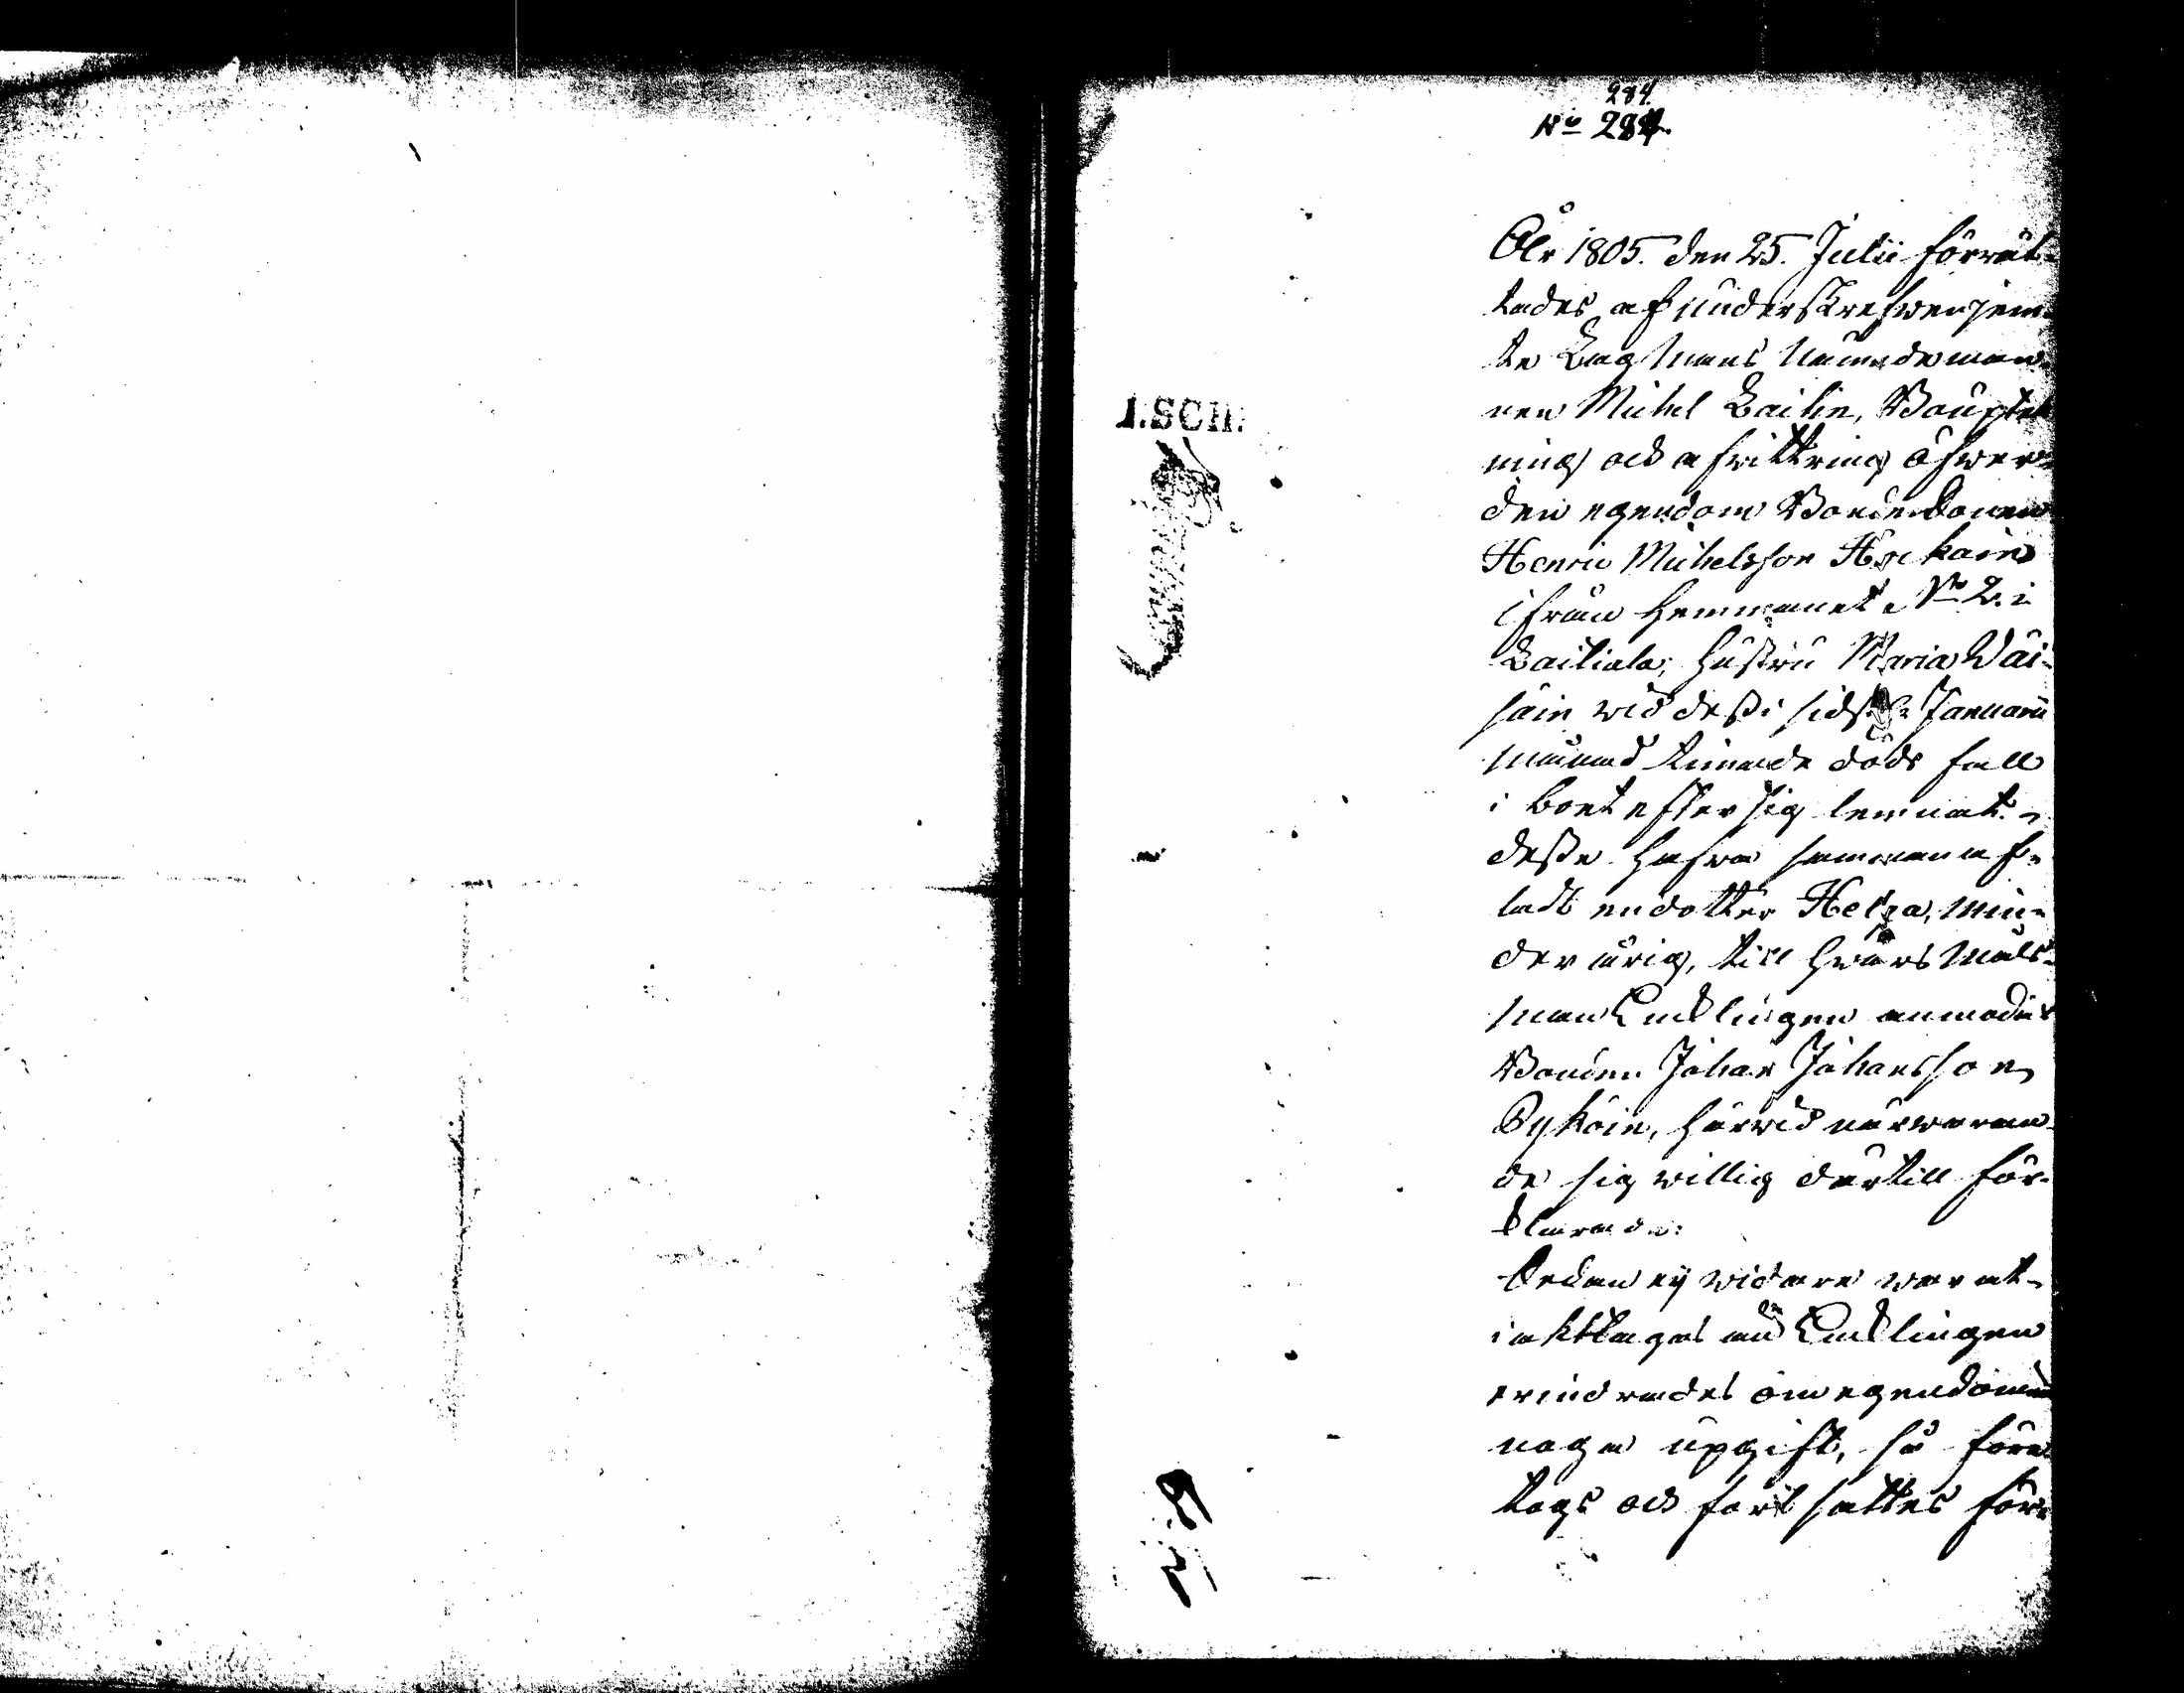 284.
No 284.
1.SCH.
År 1805. den 25. Julii förrät-
tades af underskrefwen jem-
te Lag Mans Nämndeman-
nen Michel Laihin, Boupteck
ning och afwittring öfwer
den egendom Bonde Sonen
Henric Michelsson
ifrån Hemmanet No 2. i
Laitiala, hustru Maria Wäi-
säin wid desz i sidst Januarii
månad timade döds fall
i boet efter sig lemnat.
desze hafwa samman af-
ladt en dotter Helga, min-
der årig, till hwars Måls-
man Encklingen anmodat
Bonden Johan Johansson
Pyköin, härwid närwaran-
de sig willig dertill för-
klarade:
Sedan ej widare war at
iakttagas än Encklingen
erindrades om egendomens
noga upgift, så före
togs och fortsattes för-